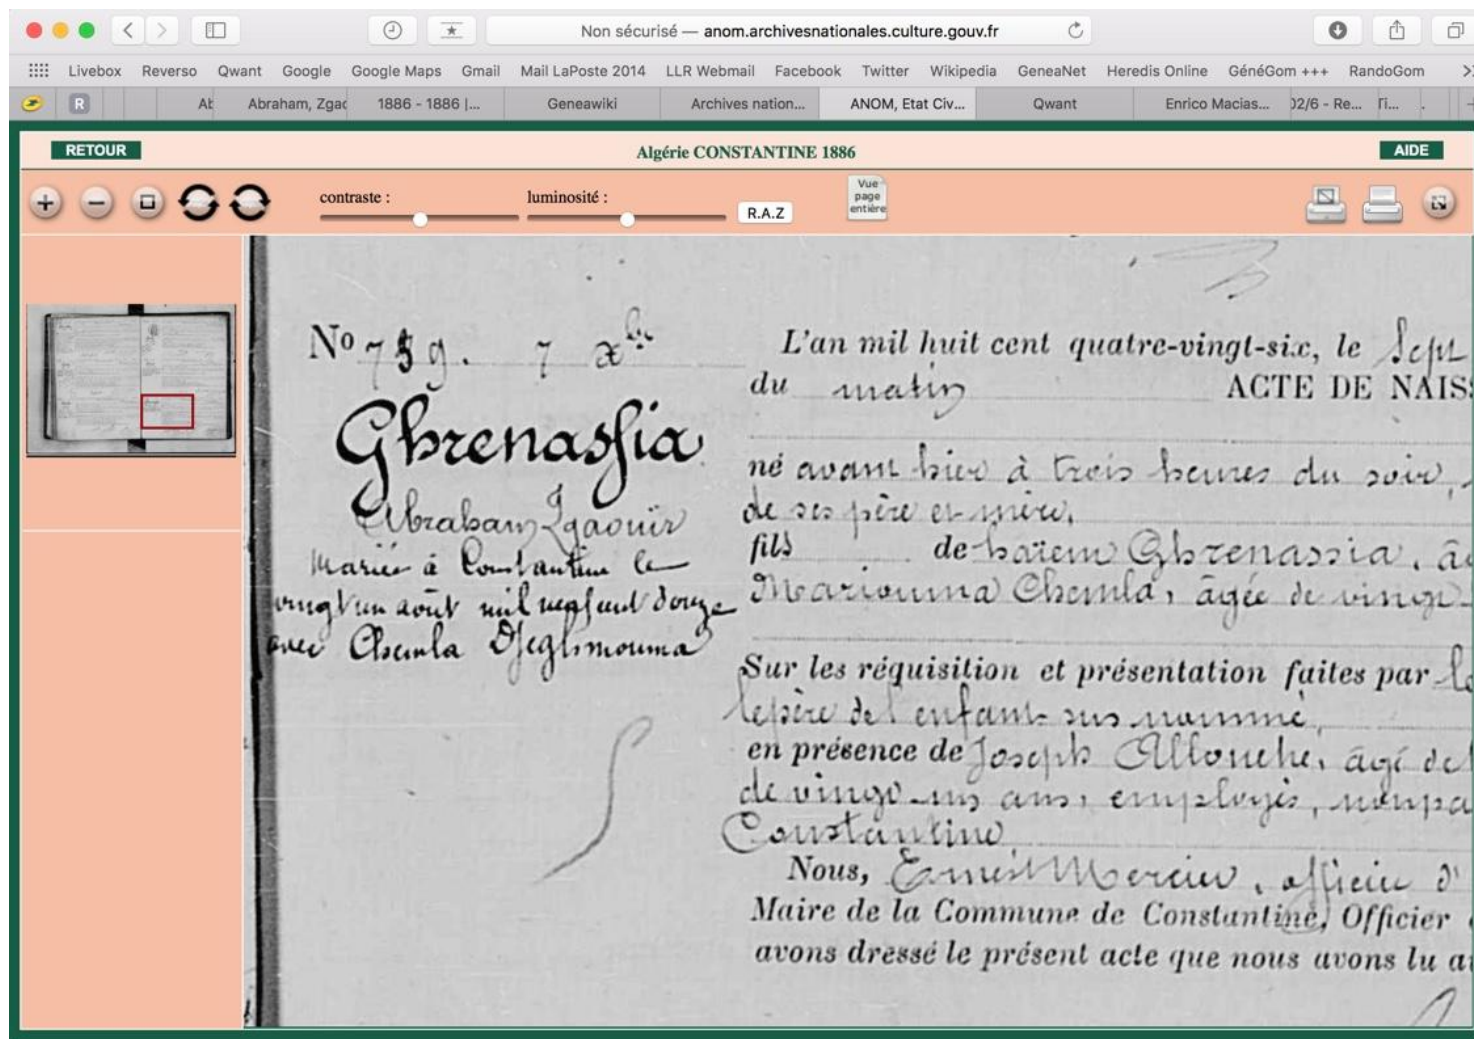 Non sécurisé — anom.archivesnationales.culture.gouv.fr
Livebox Reverso Qwant Google Google Maps Gmail Mail LaPoste 2014 LLR Webmail Facebook Twitter Wikipedia GeneaNet Heredis Online GénéGom +++ RandoGom
R Abraham, Zgao 1886 - 1886 |... Geneawiki Archives nation... ANOM, Etat Civ... Qwant Enrico Macias... 02/6 - Re...
RETOUR Algérie CONSTANTINE 1886 AIDE
contraste : luminosité : R.A.Z Vue page entière
No 759. 7 xbre
Ghrenassia
Abraham Zgaouir
Mariée à Constantine le
vingt un août mil neuf cent douze
avec Chemla Djeghmouma
L'an mil huit cent quatre-vingt-six, le Sept
du matin ACTE DE NAIS
né avant hier à trois heures du soir,
de ses père et mère,
fils de haïem Ghrenassia, âg
Mariouma Chemla, âgée de vingt
Sur les réquisition et présentation faites par le
le père de l'enfant sus nommé,
en présence de Joseph Allouche, âgé de
de vingt-un ans, employés, non pa
Constantine
Nous, Ernest Mercier, officier d'
Maire de la Commune de Constantine, Officier
avons dressé le présent acte que nous avons lu a